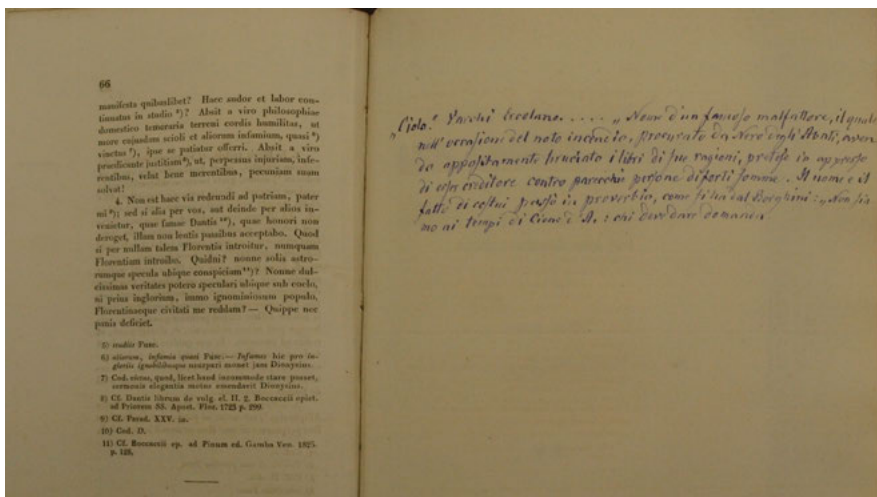 66
manifesta quibuslibet? Haec sudor et labor con-
tinuatus in studio ⁵)? Absit a viro philosophiae
domestico temeraria terreni cordis humilitas, ut
more cujusdam scioli et aliorum infamium, quasi ⁶)
vinctus ⁷), ipse se patiatur offerri. Absit a viro
praedicante justitiam ⁸), ut, perpessus injuriam, infe-
rentibus, velut bene merentibus, pecuniam suam
solvat!
4. Non est haec via redeundi ad patriam, pater
mi ⁹); sed si alia per vos, aut deinde per alios in-
venietur, quae famae Dantis ¹⁰), quae honori non
deroget, illam non lentis passibus acceptabo. Quod
si per nullam talem Florentia introitur, nunquam
Florentiam introibo. Quidni? nonne solis astro-
rumque specula ubique conspiciam ¹¹)? Nonne dul-
cissimas veritates potero speculari ubique sub coelo,
ni prius inglorium, immo ignominiosum populo,
Florentinaeque civitati me reddam? — Quippe nec
panis deficiet.
5) studiis Fusc.
6) aliorum, infamia quasi Fusc. — Infames hic pro in-
gloriis ignobilibusque usurpari monet jam Dionysius.
7) Cod. victus, quod, licet haud incommode stare posset,
sermonis elegantia motus emendavit Dionysius.
8) Cf. Dantis librum de vulg. el. II. 2. Boccaccii epist.
ad Priorem SS. Apost. Flor. 1723 p. 290.
9) Cf. Parad. XXV. in.
10) Cod. D.
11) Cf. Boccaccii ep. ad Pinum ed. Gamba Ven. 1825.
p. 128.
„Ciolo." Varchi Ercolano. . . . . „Nome d'un famoso malfattore, il quale
nell' occasione del noto incencio, procurato da Neri degli Abati, aven
do appositamente bruciato i libri di sue ragioni, pretese in appresso
di esser creditore contro parecchie persone di forti somme. Il nome e il
fatto di costui passò in proverbio, come si ha dal Borghini: „Non sia
mo ai tempi di Ciolo d A.: chi dee dare domanda